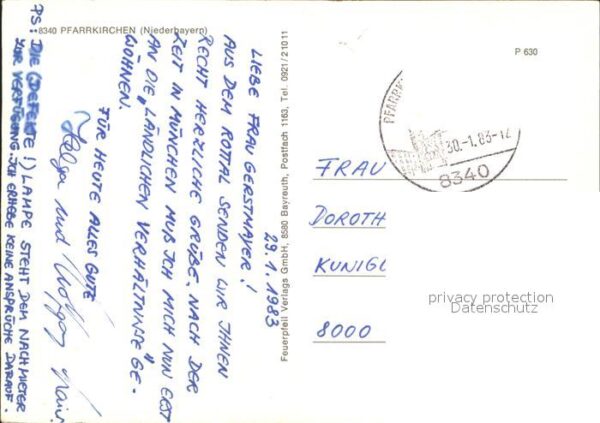 8340 PFARRKIRCHEN (Niederbayern)
29.1.1983
LIEBE FRAU GERSTMAYER!
AUS DEM ROTTAL SENDEN WIR IHNEN
RECHT HERZLICHE GRÜßE. NACH DER
ZEIT IN MÜNCHEN MUß ICH MICH NUN ERST
AN DIE „LÄNDLICHEN VERHÄLTNISSE" GE-
WÖHNEN.
FÜR HEUTE ALLES GUTE
Helga und Wolfgang
PS: DIE (DEFEKTE!) LAMPE STEHT DEM NACHMIETER
ZUR VERFÜGUNG. ICH ERHEBE KEINE ANSPRÜCHE DARAUF.
Feuerpfeil Verlags GmbH, 8580 Bayreuth, Postfach 1163, Tel. 0921/21011
P 630
30.-1.83-12
8340
FRAU
DOROTH
KUNIGL
8000
privacy protection
Datenschutz